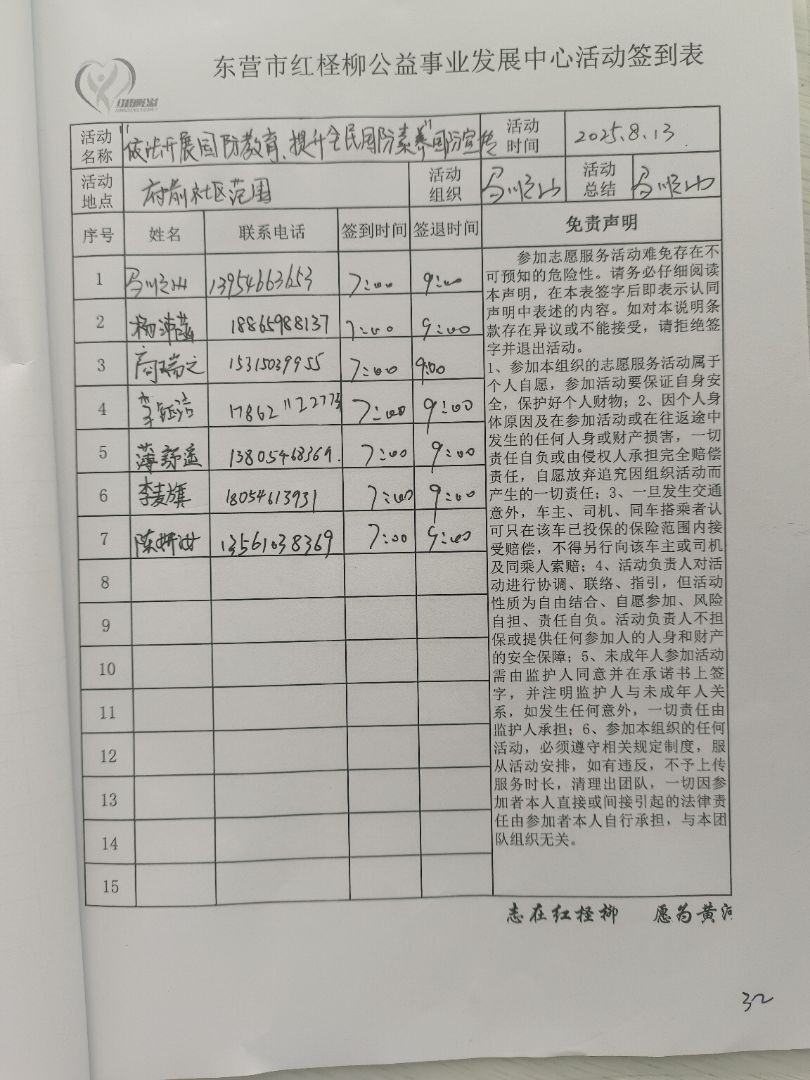 东营市红柽柳公益事业发展中心活动签到表
活动名称 "依法开展国防教育、提升全民国防素养"国防宣传 活动时间 2025.8.13
活动地点 府前社区范围 活动组织 马顺山 活动总结 马顺山
序号 姓名 联系电话 签到时间 签退时间 免责声明
1 马顺山 13954663653 7:00 9:00
2 杨沛菡 18865988137 7:00 9:00
3 高瑞之 15315039955 7:00 9:00
4 李钰洁 7:00 9:00
5 薄 13805468369. 7:00 9:00
6 李麦旗 18054613931 7:00 9:00
7 陈妍汝 13561038369 7:00 9:00
8
9
10
11
12
13
14
15
参加志愿服务活动难免存在不
可预知的危险性。请务必仔细阅读
本声明，在本表签字后即表示认同
声明中表述的内容。如对本说明条
款存在异议或不能接受，请拒绝签
字并退出活动。
1、参加本组织的志愿服务活动属于
个人自愿，参加活动要保证自身安
全，保护好个人财物；2、因个人身
体原因及在参加活动或在往返途中
发生的任何人身或财产损害，一切
责任自负或由侵权人承担完全赔偿
责任，自愿放弃追究因组织活动而
产生的一切责任；3、一旦发生交通
意外，车主、司机、同车搭乘者认
可只在该车已投保的保险范围内接
受赔偿，不得另行向该车主或司机
及同乘人索赔；4、活动负责人对活
动进行协调、联络、指引，但活动
性质为自由结合、自愿参加、风险
自担、责任自负。活动负责人不担
保或提供任何参加人的人身和财产
的安全保障；5、未成年人参加活动
需由监护人同意并在承诺书上签
字，并注明监护人与未成年人关
系，如发生任何意外，一切责任由
监护人承担；6、参加本组织的任何
活动，必须遵守相关规定制度，服
从活动安排，如有违反，不予上传
服务时长，清理出团队，一切因参
加者本人直接或间接引起的法律责
任由参加者本人自行承担，与本团
队组织无关。
志在红柽柳 愿为黄河
32